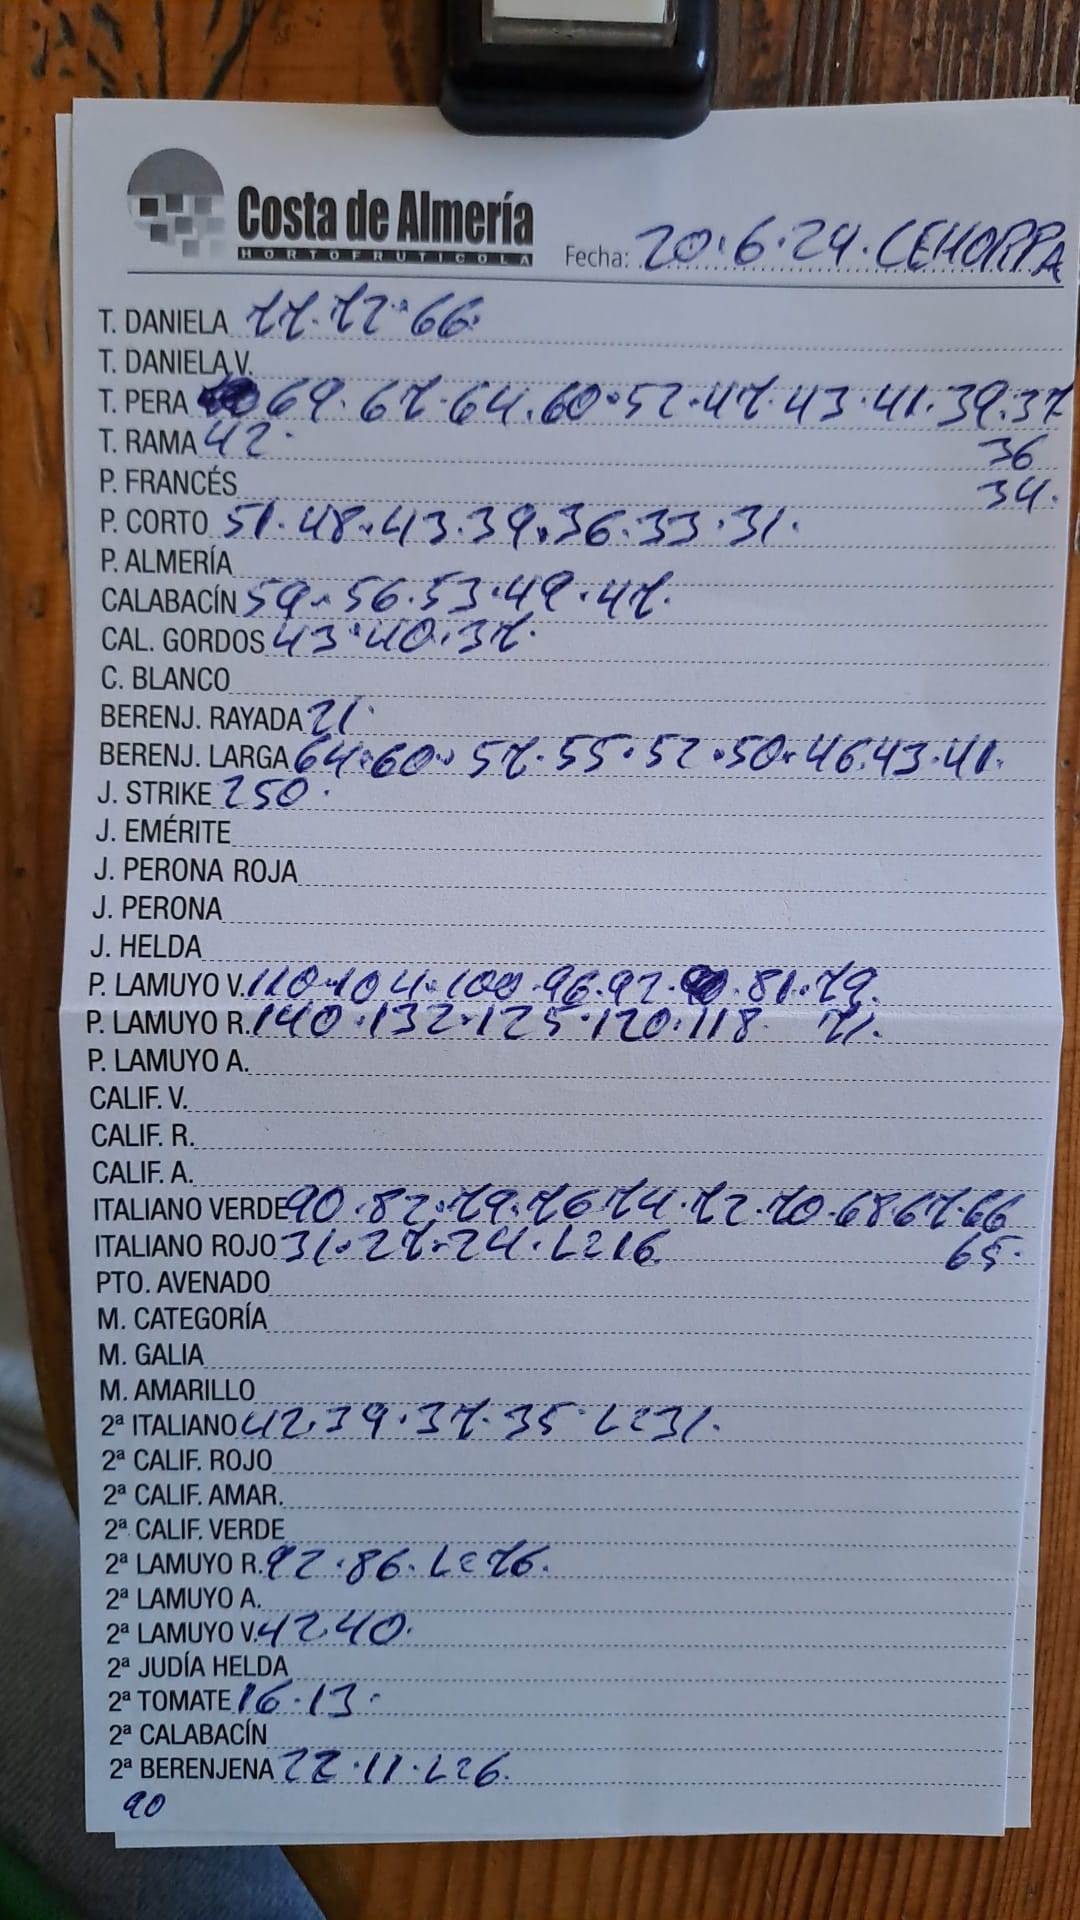 Costa de Almería
HORTOFRUTICOLA
Fecha: 20.6.24. CEHORPA
T. DANIELA 77.72.66.
T. DANELA V.
T. PERA 69.67.64.60.52.47.43.41.39.37
T. RAMA 42. 36
P. FRANCÉS 34.
P. CORTO 51.48.43.39.36.33.31.
P. ALMERÍA
CALABACÍN 59.56.53.49.47.
CAL. GORDOS 43.40.37.
C. BLANCO
BERENJ. RAYADA 21.
BERENJ. LARGA 64.60.57.55.52.50.46.43.41.
J. STRIKE 250.
J. EMÉRITE
J. PERONA ROJA
J. PERONA
J. HELDA
P. LAMUYO V. 110.104.100.96.92.90.81.79.
P. LAMUYO R. 140.132.125.120.118. 71.
P. LAMUYO A.
CALIF. V.
CALIF. R.
CALIF. A.
ITALIANO VERDE 90.82.79.76.74.72.70.68.67.66
ITALIANO ROJO 31.27.24.L=16. 65.
PTO. AVENADO
M. CATEGORÍA
M. GALIA
M. AMARILLO
2ª ITALIANO 42.39.37.35.L=31.
2ª CALIF. ROJO
2ª CALIF. AMAR.
2ª CALIF. VERDE
2ª LAMUYO R. 92.86.L=76.
2ª LAMUYO A.
2ª LAMUYO V. 42.40.
2ª JUDÍA HELDA
2ª TOMATE 16.13.
2ª CALABACÍN
2ª BERENJENA 22.11.L=6.
90